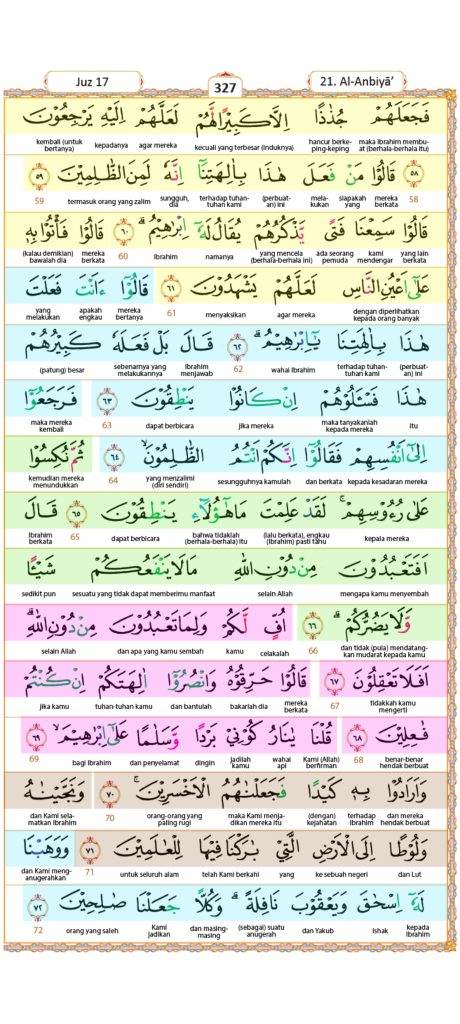 Juz 17
327
21. Al-Anbiyā’
فَجَعَلَهُمْ جُذٰذًا اِلَّا كَبِيْرًا لَّهُمْ لَعَلَّهُمْ اِلَيْهِ يَرْجِعُوْنَ
maka Ibrahim membuat (berhala-berhala itu) hancur berkeping-keping kecuali yang terbesar (induknya) agar mereka kepadanya kembali (untuk bertanya)
٥٨ قَالُوْا مَنْ فَعَلَ هٰذَا بِاٰلِهَتِنَآ اِنَّهٗ لَمِنَ الظّٰلِمِيْنَ ٥٩
58 mereka berkata siapakah yang melakukan (perbuatan) ini terhadap tuhan-tuhan kami sungguh, dia termasuk orang yang zalim 59
قَالُوْا سَمِعْنَا فَتًى يَّذْكُرُهُمْ يُقَالُ لَهٗٓ اِبْرٰهِيْمُ ۗ ٦٠ قَالُوْا فَأْتُوْا بِهٖ
yang lain berkata kami mendengar ada seorang pemuda yang mencela (berhala-berhala ini) namanya Ibrahim 60 mereka berkata (kalau demikian) bawalah dia
عَلٰٓى اَعْيُنِ النَّاسِ لَعَلَّهُمْ يَشْهَدُوْنَ ٦١ قَالُوْٓا ءَاَنْتَ فَعَلْتَ
dengan diperlihatkan kepada orang banyak agar mereka menyaksikan 61 mereka bertanya apakah engkau yang melakukan
هٰذَا بِاٰلِهَتِنَا يٰٓاِبْرٰهِيْمُ ۗ ٦٢ قَالَ بَلْ فَعَلَهٗ كَبِيْرُهُمْ
(perbuatan) ini terhadap tuhan-tuhan kami wahai Ibrahim 62 Ibrahim menjawab sebenarnya yang melakukannya (patung) besar
هٰذَا فَسْـَٔلُوْهُمْ اِنْ كَانُوْا يَنْطِقُوْنَ ٦٣ فَرَجَعُوْٓا
itu maka tanyakanlah kepada mereka jika mereka dapat berbicara 63 maka mereka kembali
اِلٰٓى اَنْفُسِهِمْ فَقَالُوْٓا اِنَّكُمْ اَنْتُمُ الظّٰلِمُوْنَ ۙ ٦٤ ثُمَّ نُكِسُوْا
kepada kesadaran mereka dan berkata sesungguhnya kamulah yang menzalimi (diri sendiri) 64 kemudian mereka menundukkan
عَلٰى رُءُوْسِهِمْ ۚ لَقَدْ عَلِمْتَ مَا هٰٓؤُلَاۤءِ يَنْطِقُوْنَ ٦٥ قَالَ
kepala mereka (lalu berkata), engkau (Ibrahim) pasti tahu bahwa tidaklah (berhala-berhala) itu dapat berbicara 65 Ibrahim berkata
اَفَتَعْبُدُوْنَ مِنْ دُوْنِ اللّٰهِ مَا لَا يَنْفَعُكُمْ شَيْـًٔا
mengapa kamu menyembah selain Allah sesuatu yang tidak dapat memberimu manfaat sedikit pun
وَّلَا يَضُرُّكُمْ ۗ ٦٦ اُفٍّ لَّكُمْ وَلِمَا تَعْبُدُوْنَ مِنْ دُوْنِ اللّٰهِ ۗ
dan tidak (pula) mendatangkan mudarat kepada kamu 66 celakalah kamu dan apa yang kamu sembah selain Allah
اَفَلَا تَعْقِلُوْنَ ٦٧ قَالُوْا حَرِّقُوْهُ وَانْصُرُوْٓا اٰلِهَتَكُمْ اِنْ كُنْتُمْ
tidakkah kamu mengerti 67 mereka berkata bakarlah dia dan bantulah tuhan-tuhan kamu jika kamu
فٰعِلِيْنَ ٦٨ قُلْنَا يٰنَارُ كُوْنِيْ بَرْدًا وَّسَلٰمًا عَلٰٓى اِبْرٰهِيْمَ ۙ ٦٩
benar-benar hendak berbuat 68 Kami (Allah) berfirman wahai api jadilah kamu dingin dan penyelamat bagi Ibrahim 69
وَاَرَادُوْا بِهٖ كَيْدًا فَجَعَلْنٰهُمُ الْاَخْسَرِيْنَ ۚ ٧٠ وَنَجَّيْنٰهُ
dan mereka hendak berbuat terhadap Ibrahim (dengan) kejahatan maka Kami menjadikan mereka itu orang-orang yang paling rugi 70 dan Kami selamatkan Ibrahim
وَلُوْطًا اِلَى الْاَرْضِ الَّتِيْ بٰرَكْنَا فِيْهَا لِلْعٰلَمِيْنَ ٧١ وَوَهَبْنَا
dan Lut ke sebuah negeri yang telah Kami berkahi untuk seluruh alam 71 dan Kami menganugerahkan
لَهٗٓ اِسْحٰقَ وَيَعْقُوْبَ نَافِلَةً ۗ وَكُلًّا جَعَلْنَا صٰلِحِيْنَ ٧٢
kepada Ibrahim Ishak dan Yakub (sebagai) suatu anugerah dan masing-masing Kami jadikan orang yang saleh 72